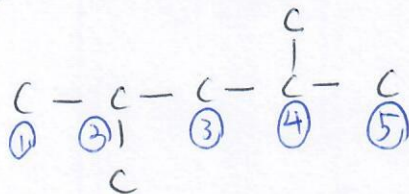 C
C — C — C — C — C
① ② ③ ④ ⑤
C